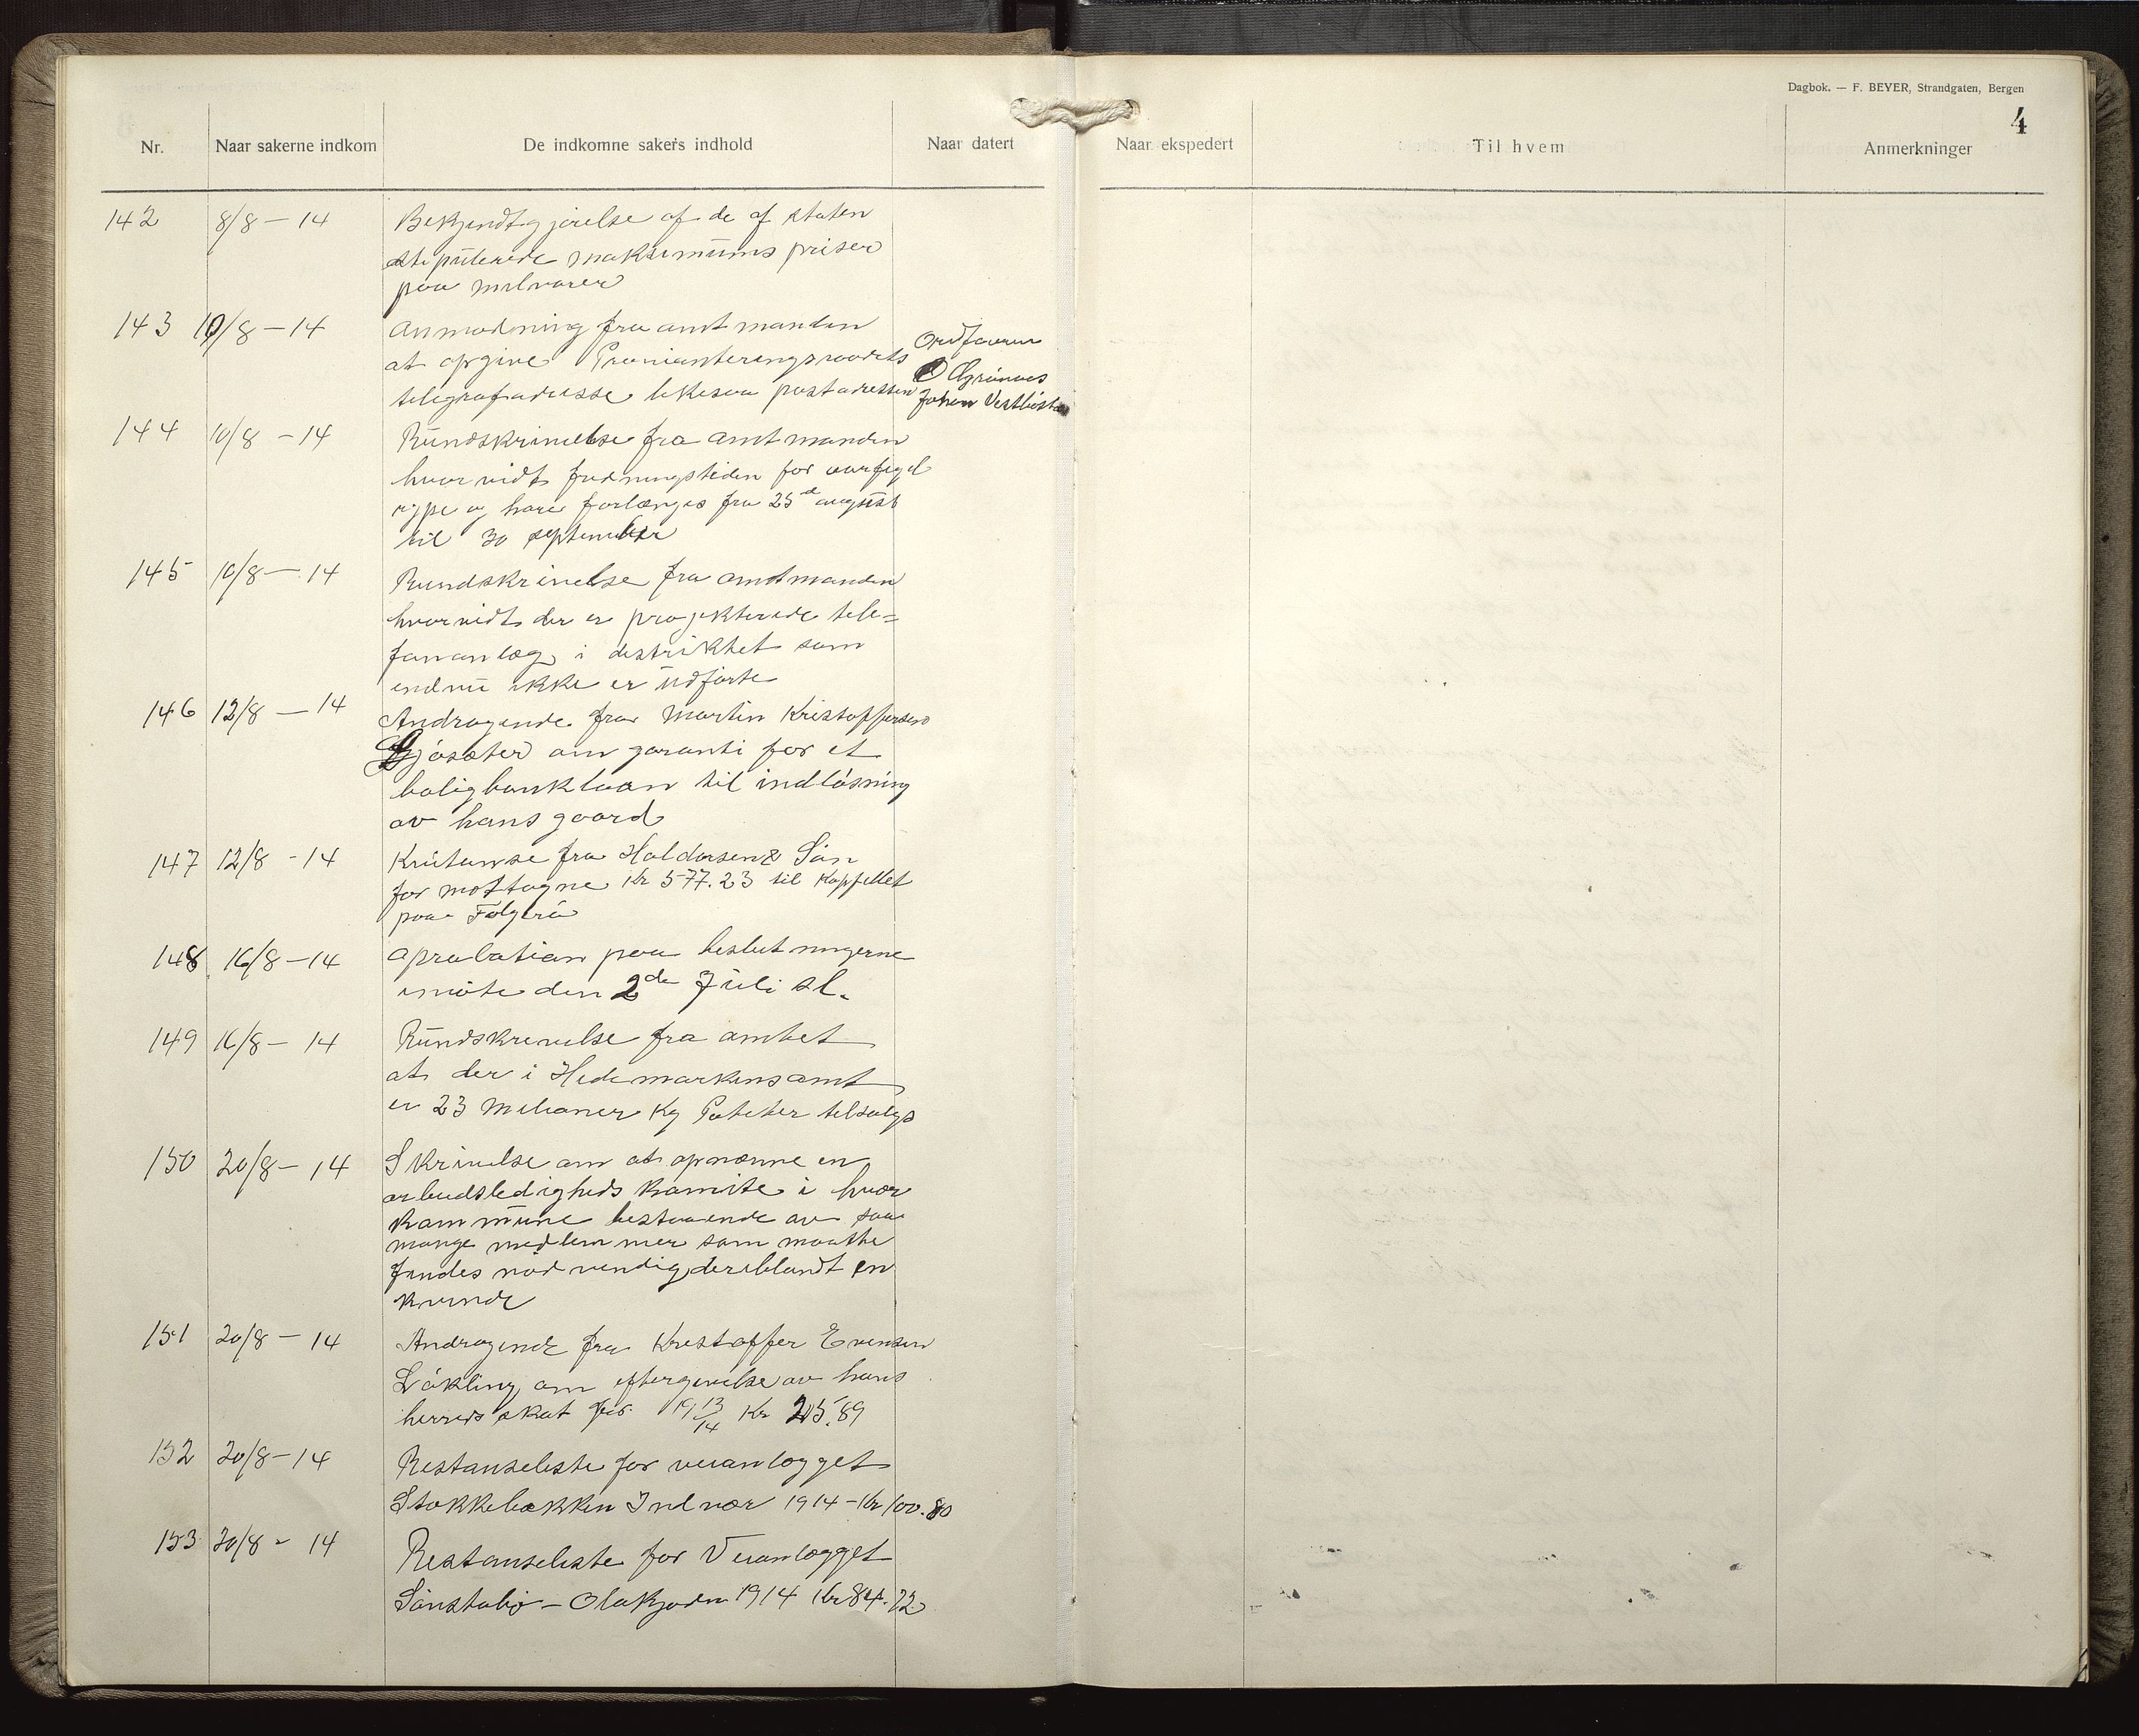 Dagbok. — F. BEYER, Strandgaten, Bergen
4
Nr. Naar sakerne indkom De indkomne sakers indhold Naar datert Naar ekspedert Til hvem Anmerkninger
142 8/8 — 14 Bekjendtgjørelse af de af staten
stipulerede maksimums priser
paa melvarer
143 10/8 — 14 Anmodning fra amtmanden
at opgive Provianteringsraadets
telegrafadresse likesaa postadressen
Ordføreren
Øgrünnes
Johan
144 10/8 — 14 Rundskrivelse fra amtmanden
hvorvidt fredningstiden for aarfugl
rype og hare forlænges fra 25de august
til 30 september
145 10/8 — 14 Rundskrivelse fra amtmanden
hvorvidt der er projekterede tele=
fonanlæg i distriktet som
endnu ikke er udførte
146 12/8 — 14 Andragende fra Martin Kristoffersen
Gjøsæter om garanti for et
boligbanklaan til indløsning
av hans gaard
147 12/8 - 14 Kvitanse fra Haldorsen & Søn
for mottagne Kr 577.23 til Kappellet
paa Folgerø
148 16/8 — 14 Aprobation paa beslutningerne
imøte den 2de Juli sl.
149 16/8 — 14 Rundskrivelse fra amtet
at der i Hedemarkens amt
er 23 Milioner Kg Poteter tilsalgs
150 20/8 — 14 Skrivelse om at opnævne en
arbeidsledigheds komite i hver
kommune bestaaende av saa
mange medlemmer som maatte
findes nødvendig deriblandt en
kvinde
151 20/8 — 14 Andragende fra Kristoffer Evensen
Løkling om eftergivelse av hans
herredsskat for 19 13/14 Kr 25.89
152 20/8 — 14 Restanseliste for veianlægget
Stokkebækken Indvær 1914 — Kr 100.80
153 20/8 - 14 Restanseliste for Veianlægget
Sønstabø — Olakjoden 1914 Kr 84.72